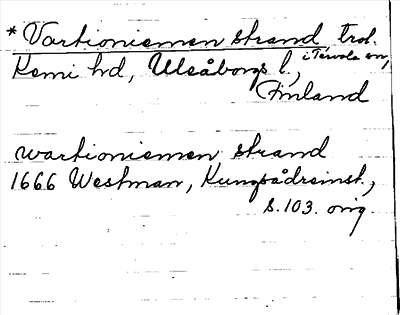 * Vartioniemen strand trol.
Kemi hd, Uleåborgs l., i Tervola sn,
Finland
wartioniemen, strand
1666 Westman, Kungsådreinst.,
s. 103. orig.